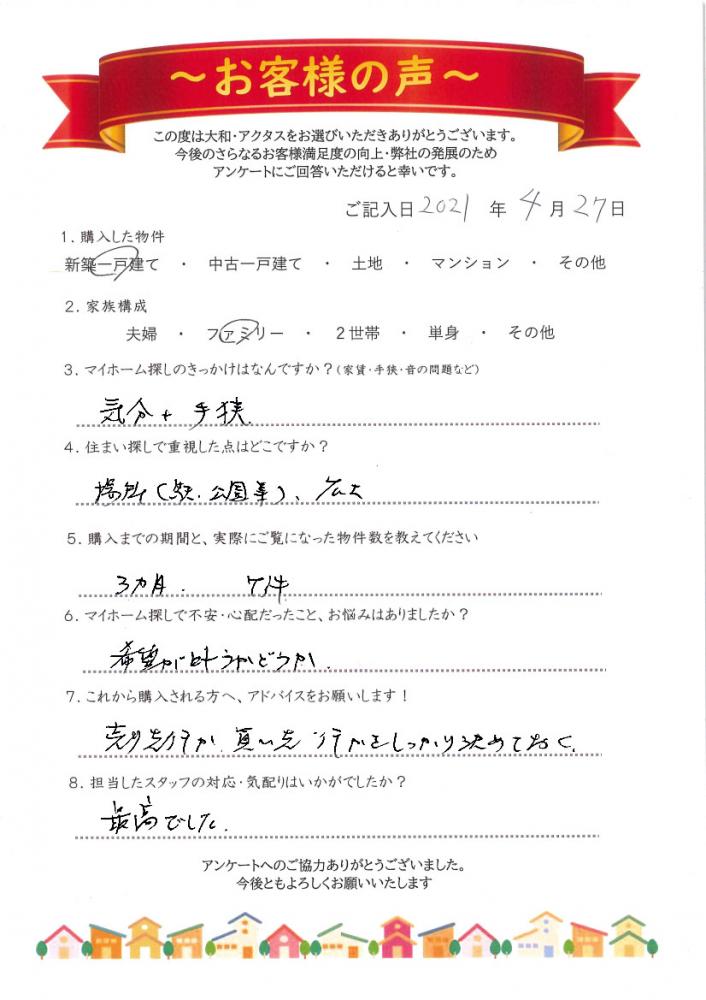 ～お客様の声～
この度は大和・アクタスをお選びいただきありがとうございます。
今後のさらなるお客様満足度の向上・弊社の発展のため
アンケートにご回答いただけると幸いです。
ご記入日 2021 年 4 月 27 日
1. 購入した物件
新築一戸建て ・ 中古一戸建て ・ 土地 ・ マンション ・ その他
2. 家族構成
夫婦 ・ ファミリー ・ 2世帯 ・ 単身 ・ その他
3. マイホーム探しのきっかけはなんですか?(家賃・手狭・音の問題など)
気分+手狭.
4. 住まい探しで重視した点はどこですか?
場所(駅.公園等)、広さ
5. 購入までの期間と、実際にご覧になった物件数を教えてください
3カ月. 7件
6. マイホーム探しで不安・心配だったこと、お悩みはありましたか?
希望が叶うかどうか.
7. これから購入される方へ、アドバイスをお願いします!
売り先行か.買い先行かをしっかり決めておく.
8. 担当したスタッフの対応・気配りはいかがでしたか?
最高でした.
アンケートへのご協力ありがとうございました。
今後ともよろしくお願いいたします